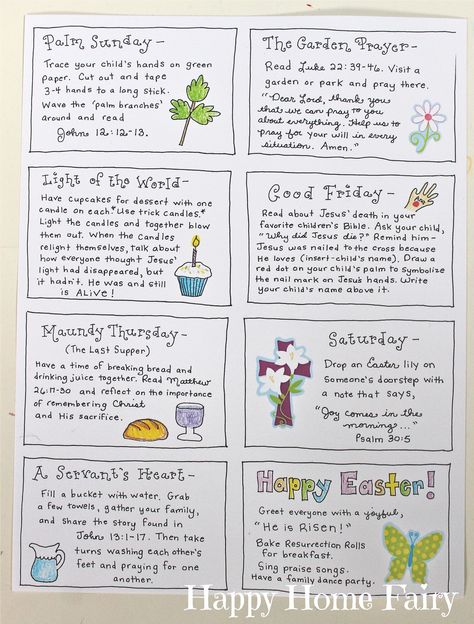 Palm Sunday -
Trace your child's hands on green
paper. Cut out and tape
3-4 hands to a long stick.
Wave the 'palm branches'
around and read
John 12:12-13.
The Garden Prayer -
Read Luke 22:39-46. Visit a
garden or park and pray there.
"Dear Lord, thank you
that we can pray to you
about everything. Help us to
pray for your will in every
situation. Amen."
Light of the World -
Have cupcakes for dessert with one
candle on each. *Use trick candles.*
Light the candles and together blow
them out. When the candles
relight themselves, talk about
how everyone thought Jesus'
light had disappeared, but
it hadn't. He was and still
is ALIVE!
Good Friday -
Read about Jesus' death in your
favorite children's Bible. Ask your child,
"Why did Jesus die?" Remind him -
Jesus was nailed to the cross because
He loves (insert-child's name). Draw a
red dot on your child's palm to symbolize
the nail mark on Jesus hands. Write
your child's name above it.
Maundy Thursday -
(The Last Supper)
Have a time of breaking bread and
drinking juice together. Read Matthew
26:17-30 and reflect on the importance
of remembering Christ
and His sacrifice.
Saturday -
Drop an Easter lily on
someone's doorstep with
a note that says,
"Joy comes in the
morning..."
Psalm 30:5
A Servant's Heart -
Fill a bucket with water. Grab
a few towels, gather your family,
and share the story found in
John 13:1-17. Then take
turns washing each other's
feet and praying for one
another.
Happy Easter!
Greet everyone with a joyful,
"He is Risen!"
Bake Resurrection Rolls
for breakfast.
Sing praise songs.
Have a family dance party.
Happy Home Fairy